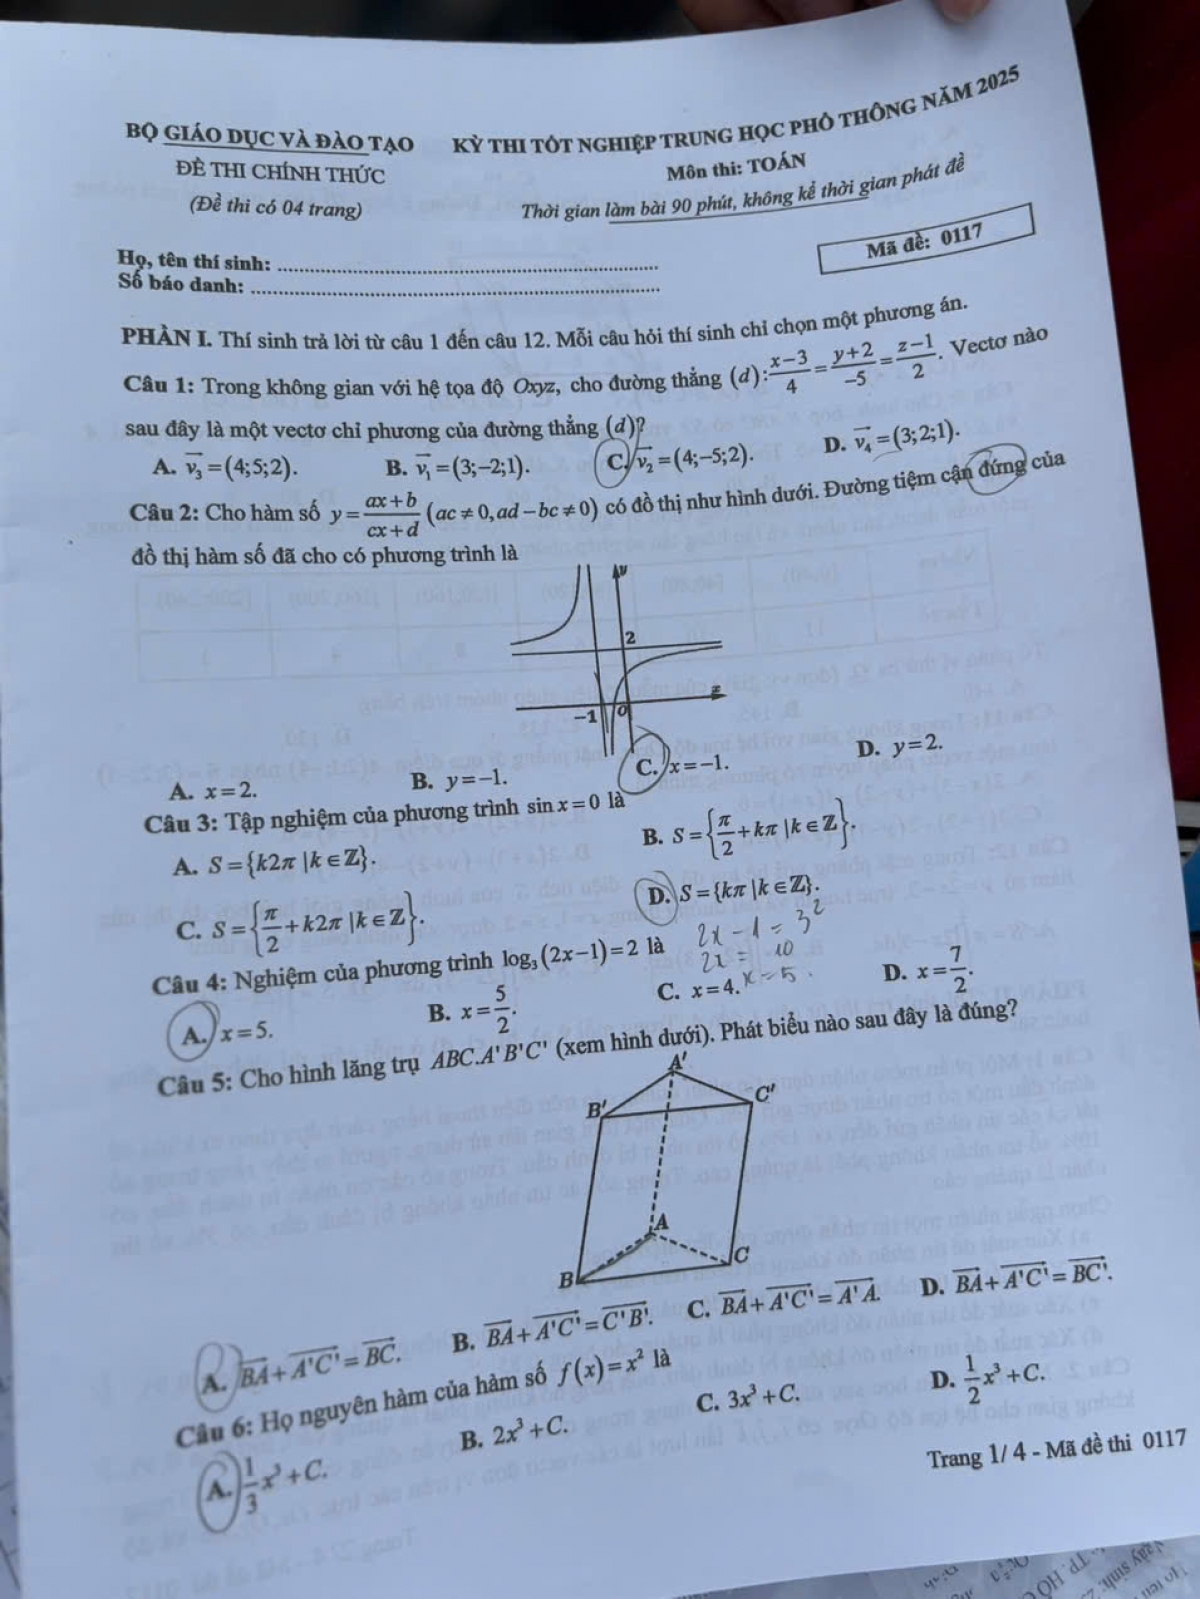 BỘ GIÁO DỤC VÀ ĐÀO TẠO
ĐỀ THI CHÍNH THỨC
(Đề thi có 04 trang)
KỲ THI TỐT NGHIỆP TRUNG HỌC PHỔ THÔNG NĂM 2025
Môn thi: TOÁN
Thời gian làm bài 90 phút, không kể thời gian phát đề
Họ, tên thí sinh:
Số báo danh:
Mã đề: 0117
PHẦN I. Thí sinh trả lời từ câu 1 đến câu 12. Mỗi câu hỏi thí sinh chỉ chọn một phương án.
Câu 1: Trong không gian với hệ tọa độ Oxyz, cho đường thẳng (d): (x−3)/4 = (y+2)/−5 = (z−1)/2. Vectơ nào
sau đây là một vectơ chỉ phương của đường thẳng (d)?
A. v₃→ = (4;5;2). B. v₁→ = (3;−2;1). C. v₂→ = (4;−5;2). D. v₄→ = (3;2;1).
Câu 2: Cho hàm số y = (ax+b)/(cx+d) (ac ≠ 0, ad − bc ≠ 0) có đồ thị như hình dưới. Đường tiệm cận đứng của
đồ thị hàm số đã cho có phương trình là
y
2
x
−1 O
A. x = 2. B. y = −1. C. x = −1. D. y = 2.
Câu 3: Tập nghiệm của phương trình sin x = 0 là
A. S = {k2π | k ∈ ℤ}. B. S = {π/2 + kπ | k ∈ ℤ}.
C. S = {π/2 + k2π | k ∈ ℤ}. D. S = {kπ | k ∈ ℤ}.
2x − 1 = 3²
2x = 10
x = 5.
Câu 4: Nghiệm của phương trình log₃(2x−1) = 2 là
A. x = 5. B. x = 5/2. C. x = 4. D. x = 7/2.
Câu 5: Cho hình lăng trụ ABC.A'B'C' (xem hình dưới). Phát biểu nào sau đây là đúng?
A'
B' C'
A
B C
A. BA→ + A'C'→ = BC→. B. BA→ + A'C'→ = C'B'→. C. BA→ + A'C'→ = A'A→. D. BA→ + A'C'→ = BC'→.
Câu 6: Họ nguyên hàm của hàm số f(x) = x² là
A. 1/3 x³ + C. B. 2x³ + C. C. 3x³ + C. D. 1/2 x³ + C.
Trang 1/ 4 - Mã đề thi 0117